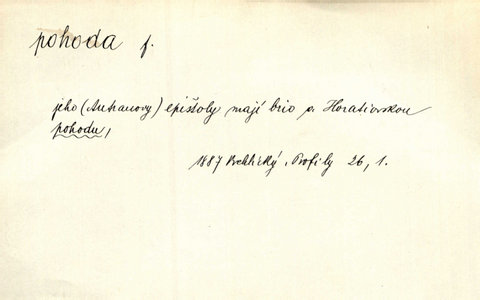 pohoda f.
jeho (Autranovy) epištoly mají brio a Horatiovskou
pohodu,
1887 Vrchlický, Profily 26, 1.